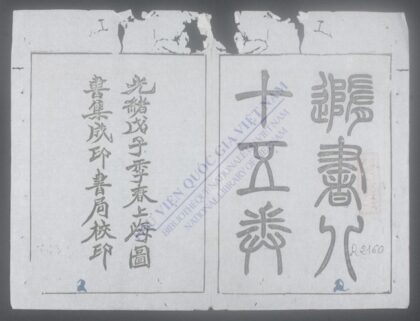 隨書八
十五卷
光緒戊子季春上海圖
書集成印書局校印
THƯ VIỆN QUỐC GIA VIỆT NAM
BIBLIOTHÈQUE NATIONALE DU VIETNAM
NATIONAL LIBRARY OF VIETNAM
R.2160